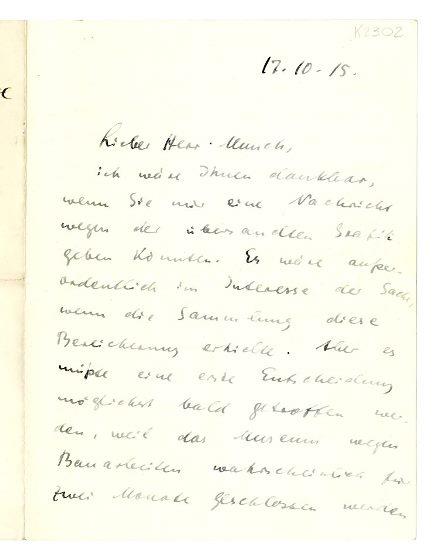 K2302
17.10.15.
Lieber Herr Munch,
ich wäre Ihnen dankbar,
wenn Sie mir eine Nachricht
wegen der übersandten Grafik
geben könnten. Es wäre außer-
ordentlich im Interesse der Sache,
wenn die Sammlung diese
Bereicherung erhielte. Aber es
müßte eine erste Entscheidung
möglichst bald getroffen wer-
den, weil das Museum wegen
Bauarbeiten wahrscheinlich für
zwei Monate geschlossen werden